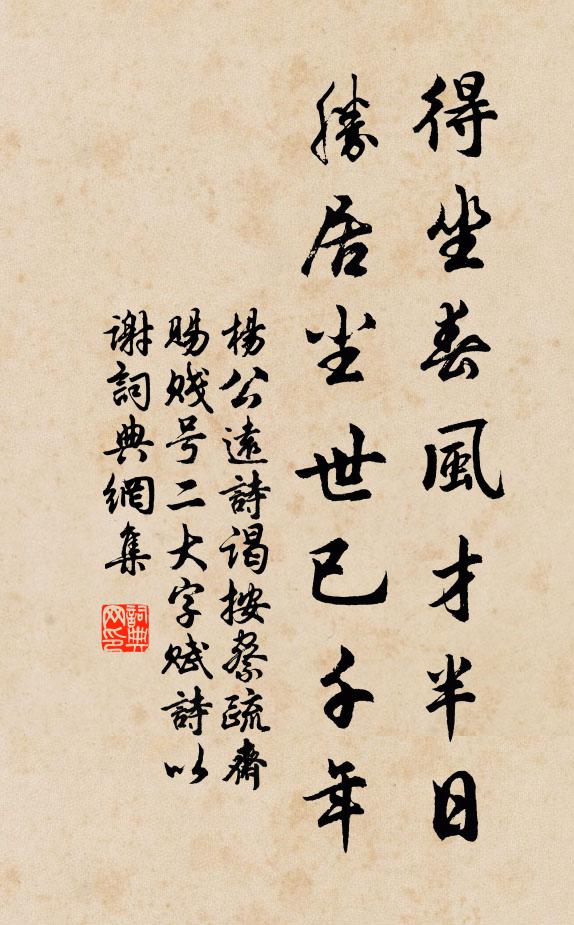 得坐春風才半日
勝居尘世已千年
楊公遠詩謁按察疏齋
賜賤号二大字賦詩以
謝詞典網集
詞典网印